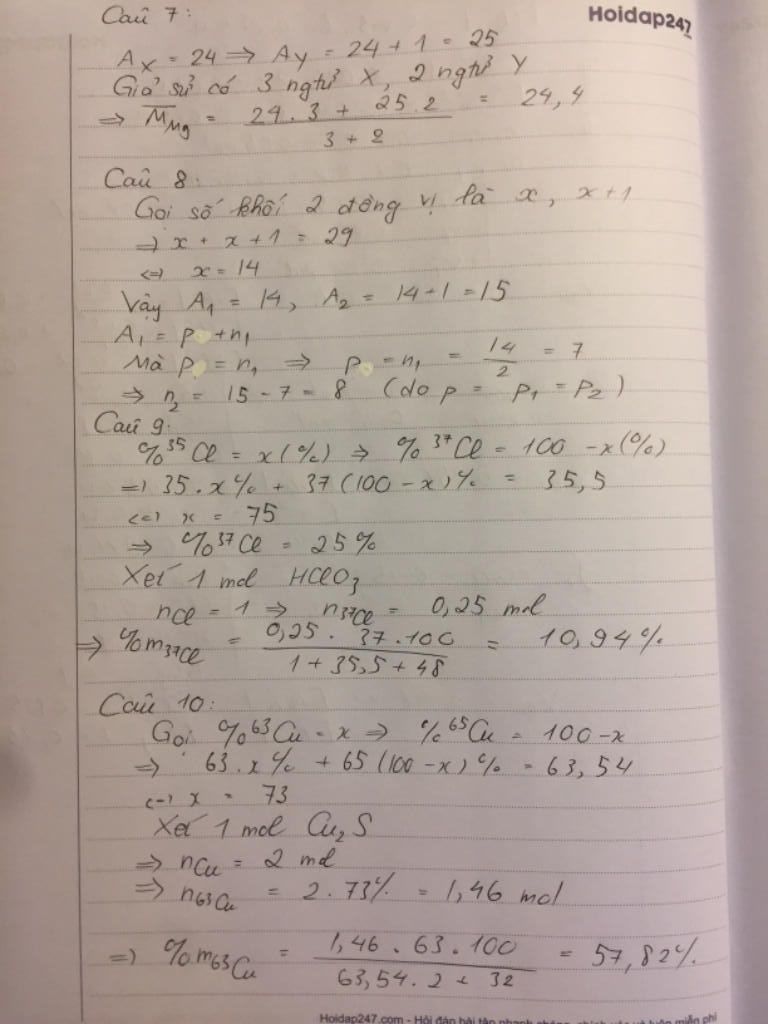 Câu 7:
Hoidap247
A_X = 24 => A_Y = 24 + 1 = 25
Giả sử có 3 ngtử X, 2 ngtử Y
=> M̅_Mg = (24.3 + 25.2)/(3 + 2) = 24,4
Câu 8:
Gọi số khối 2 đồng vị là x, x+1
=> x + x + 1 = 29
<=> x = 14
Vậy A₁ = 14, A₂ = 14 + 1 = 15
A₁ = p + n₁
Mà p = n₁ => p = n₁ = 14/2 = 7
=> n₂ = 15 - 7 = 8 (do p = p₁ = p₂)
Câu 9:
%³⁵Cl = x(%) => %³⁷Cl = 100 - x(%)
=> 35.x% + 37(100 - x)% = 35,5
<=> x = 75
=> %³⁷Cl = 25%
Xét 1 mol HClO₃
nCl = 1 => n³⁷Cl = 0,25 mol
=> %m³⁷Cl = (0,25.37.100)/(1 + 35,5 + 48) = 10,94%
Câu 10:
Gọi %⁶³Cu = x => %⁶⁵Cu = 100 - x
=> 63.x% + 65(100 - x)% = 63,54
<=> x = 73
Xét 1 mol Cu₂S
=> nCu = 2 mol
=> n⁶³Cu = 2.73% = 1,46 mol
=> %m⁶³Cu = (1,46.63.100)/(63,54.2 + 32) = 57,82%
Hoidap247.com - Hỏi đáp bài tập nhanh chóng, chính xác và luôn miễn phí